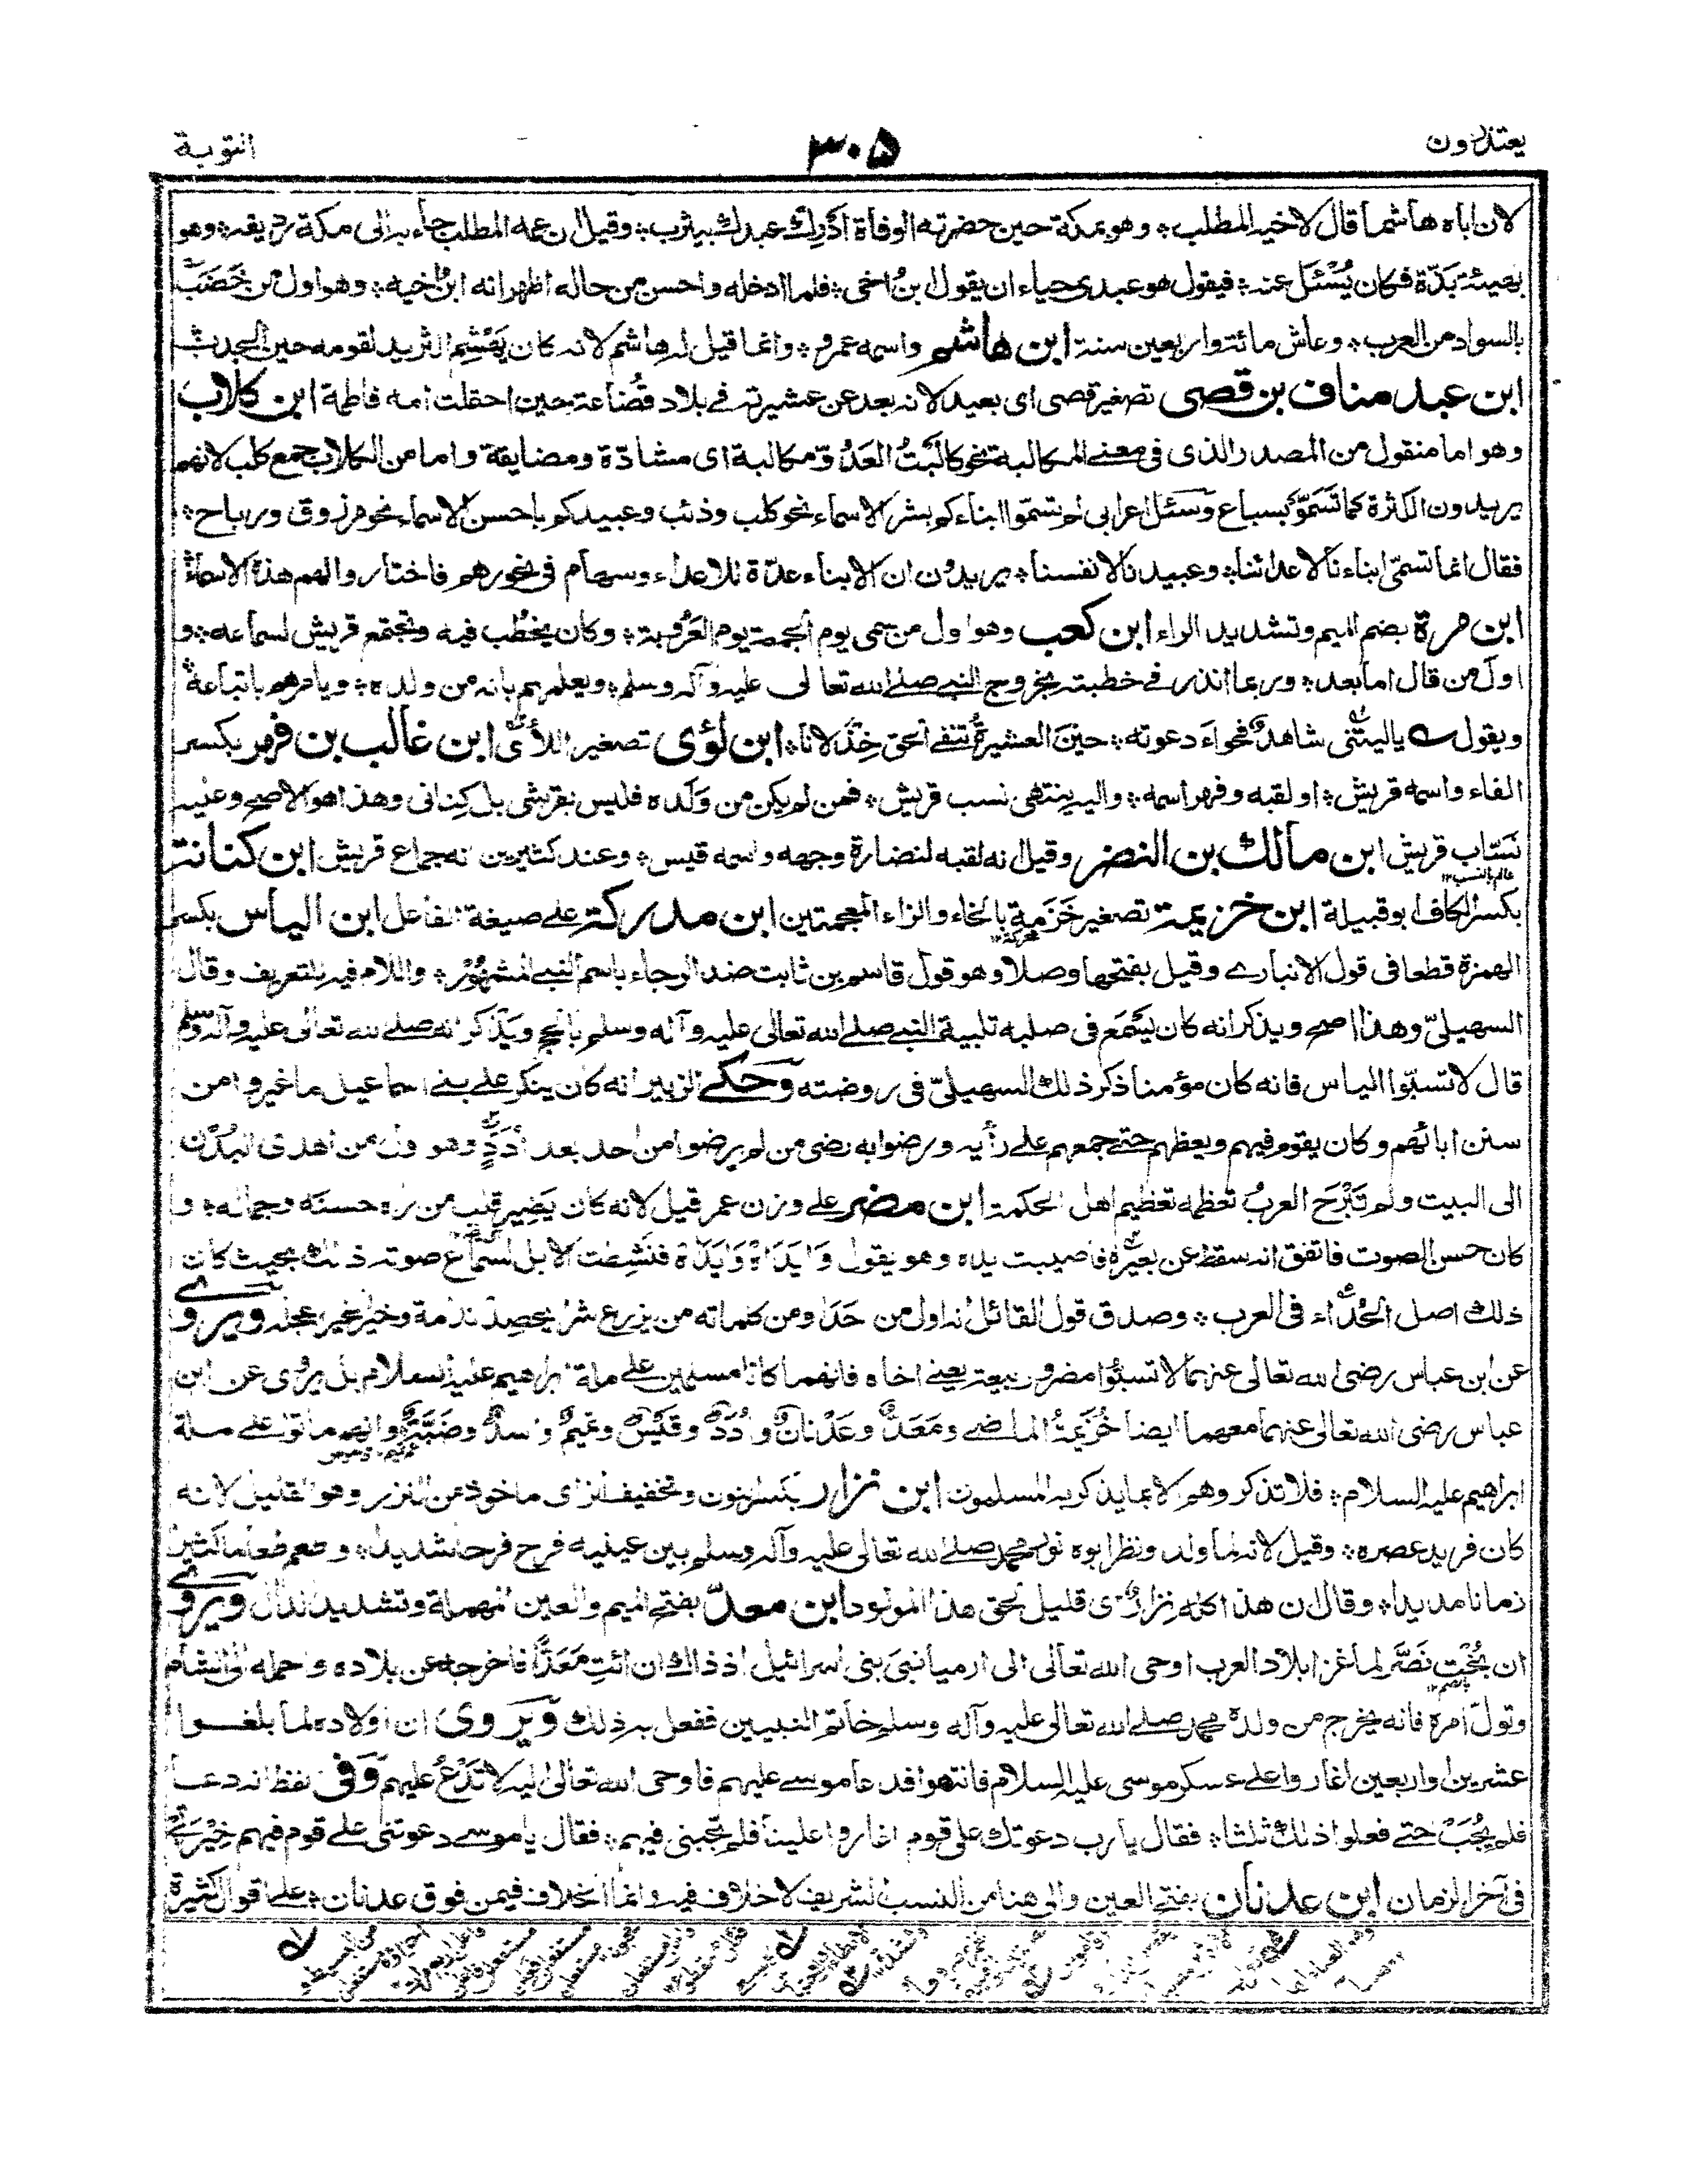 يعتذرون ٣٠٥ التوبة
لان اباه هاشما قال لاخيه المطلب؞ وهو بمكة حين حضرته الوفاة اَدْرِك عبدك بيثرب؞ وقيل ان عمه المطلب جاء به الى مكة رديفه؞ وهو
بهيئة بَذّة فكان يُسْئَل عنه؞ فيقول هو عبدى حياء ان يقول ابنُ اخى؞ فلما ادخله واحسن من حاله اظهر انه ابن اخيه؞ وهو اول من خَضَبَ
بالسواد من العرب؞ وعاش مائة واربعين سنة ابن هاشم واسمه عمرو؞ وانما قيل له هاشم لانه كان يَهْشِم الثريد لقومه حين الجدب
ابن عبد مناف بن قصى تصغير قصى اى بعيد لانه بعد عن عشيرته فے بلاد قُضَاعة حين احتملت امه فاطمة ابن كلاب
وهو اما منقول من المصدر الذى فى معنے المكالبة نحو كالَبْتُ العَدُوَّ مكالبة اى مشادّة ومضايقة واما من الكلاب جمع كلب لانهم
يريدون الكثرة كما تَسَمَّوْ بسباع وسُئل اعرابى لم تسمّوا ابناءكم بشر الاسماء نحو كلب وذئب وعبيدكم باحسن الاسماء نحو مرزوق ورباح؞
فقال انما نسمّى ابناءنا لاعدائنا؞ وعبيدنا لانفسنا؞ يريدون ان الابناء عدّة للاعداء وسهام فى نحورهم فاختاروا لهم هذه الاسماء
ابن مرة بضم الميم وتشديد الراء ابن كعب وهو اول من سمى يوم الجمعة يوم العَرُوبة؞ وكان يخطُب فيه وتجتمع قريش لسماعه؞ و
اول من قال اما بعد؞ وربما انذر فے خطبته بخروج النبے صلے الله تعالى عليه وآله وسلم؞ ويعلمهم بانه من ولده؞ ويامرهم باتباعه
ويقول ؎ ياليتنى شاهدٌ فحواءَ دعوته؞ حينَ العشيرةُ تنفے الحق خِذْلانا؞ ابن لؤى تصغير اللأى ابن غالب بن فهر بكسر
الفاء واسمه قريش؞ او لقبه وفهر اسمه؞ واليه ينتهى نسب قريش؞ فمن لم يكن من وَلَده فليس بقرشى بل كِنانى وهذا هو الاصح وعليه
نَسّاب قريش ابن مالك بن النضر وقيل انه لقبه لنضارة وجهه واسمه قيس؞ وعند كثيرين انه جماع قريش ابن كنانة
عالم بالنسب ١٢
بكسر الكاف ابو قبيلة ابن خزيمة تصغير خَزَمة بالخاء والزاء المعجمتين ابن مدركة علے صيغة الفاعل ابن الياس بكسر
محركة ١٢
الهمزة قطعا فى قول الانبارے وقيل بفتحها وصلا وهو قول قاسم بن ثابت ضد الرجاء باسم النبے المشهور؞ واللام فيه للتعريف وقال
السهيلىّ وهذا اصح ويذكر انه كان يَسْمَع فى صلبه تلبية النبے صلے الله تعالى عليه وآله وسلم بالحج ويذكر انه صلے الله تعالى عليه وآله وسلم
قال لا تسبّوا الياس فانه كان مؤمنا ذكر ذلك السهيلىّ فى روضته وحكے الزبير انه كان ينكر علے بنے اسماعيل ما غيروا من
سنن ابائهم وكان يقوم فيهم ويعظهم حتے جمعهم علے رأيه ورضوا به رضى من لم يرضوا من احد بعد اُدَدٍ وهو اول من اهدى البُدْن
الى البيت ولم تَبْرَح العربُ تعظمه تعظيم اهل الحكمة ابن مضر علے وزن عمر قيل لانه كان يَضِير قلب من راه حسنه وجماله؞ و
كان حسن الصوت فاتفق انه سقط عن بعيره فاصيبت يده وهو يقول وَايَدَاهْ وَايَدَاهْ فنشِطت الابل لسماع صوته ذلك بحيث كان
ذلك اصل الحُدَاء فى العرب؞ وصدق قول القائل انه اول من حَدَا ومن كلماته من يزرع شرّا يحصد ندامة وخير الخير اعجله ويروے
عن ابن عباس رضى الله تعالى عنهما لا تسبّوا مضر وربيعة يعنے اخاه فانهما كانا مسلمين علے ملة ابراهيم عليه السلام بل يروى عن ابن
عباس رضى الله تعالى عنهما معهما ايضا خُزَيمةُ الماضے ومَعَدٌّ وعَدْنانُ واُدَدٌ وقَيْسٌ وتميمٌ واسدٌ وضَبّةُ وانهم ماتوا علے ملة
ابراهيم عليه السلام؞ فلا تذكروهم الا بما يذكر به المسلمون ابن نزار بكسر النون وتخفيف الزاى ماخوذ من النزر وهو القليل لانه
كان فريد عصره؞ وقيل لانه لما ولد ونظر ابوه نور محمد صلے الله تعالى عليه وآله وسلم بين عينيه فرح فرحا شديدا؞ واطعم طعاما كثيرا
زمانا مديدا؞ وقال ان هذا كله نِزارٌ اى قليل لحق هذا المولود ابن معدّ بفتح الميم والعين المهملة وتشديد الدال ويروے
ان بُخْت نَصَّر لما غزا بلاد العرب اوحى الله تعالى الى ارميا نبى بنى اسرائيل اذ ذاك ان ائتِ مَعَدًّا فاخرجه عن بلاده واحمله الى الشام
بالضم ١٢
وتولّ امره فانه يخرج من ولده محمد صلے الله تعالى عليه وآله وسلم خاتم النبيين ففعل به ذلك ويَروى ان اولاده لما بلغوا
عشرين او اربعين اغاروا علے عسكر موسى عليه السلام فانتهوا فدعا موسے عليهم فاوحى الله تعالى اليه لا تَدْعُ عليهم وفى لفظ انه دعا
فلم يُجَبْ حتے فعلوا ذلك ثلثا؞ فقال يارب دعوتك على قوم اغاروا علينا فلم تجبنى فيهم؞ فقال ياموسے دعوتنى علے قوم فيهم خِيْرَتى
فى آخر الزمان ابن عدنان بفتح العين والى هنا من النسب الشريف لا خلاف فيه وانما الخلاف فيمن فوق عدنان؞ علے اقوال كثيرة